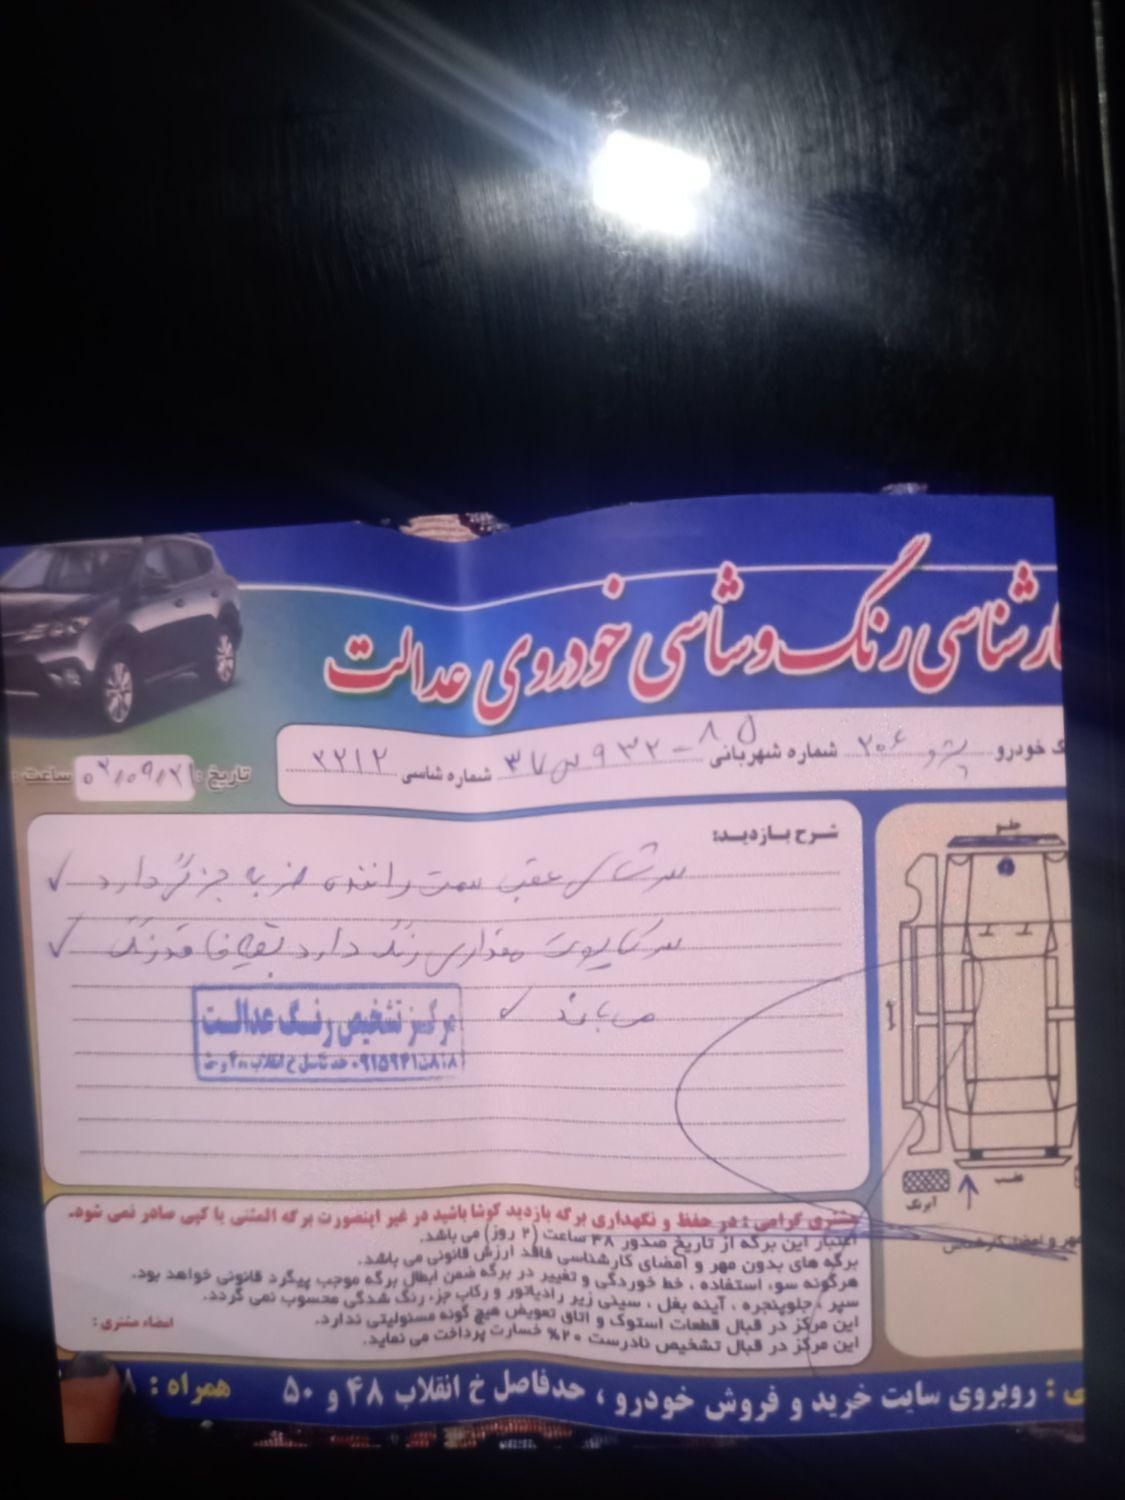 کارشناسی رنگ و شاسی خودروی عدالت
خودرو پژو ۲۰۶ شماره شهربانی ۸۵ - ۹۳۲ س ۳۷ شماره شاسی ۲۲۱۲
تاریخ: ۰۲/۰۹/۲۱ ساعت:
شرح بازدید:
سر شاسی عقب سمت راننده ضربه جزئی دارد ✓
سر کاپوت مقداری رنگ دارد بقیه فاقد رنگ ✓
می باشد ✓
مرکز تشخیص رنگ عدالت
حدفاصل خ انقلاب
جلو
عقب
آبرنگ
مهر و امضاء کارشناس
مشتری گرامی: در حفظ و نگهداری برگه بازدید کوشا باشید در غیر اینصورت برگه المثنی یا کپی صادر نمی شود.
اعتبار این برگه از تاریخ صدور ۴۸ ساعت (۲ روز) می باشد.
برگه های بدون مهر و امضای کارشناسی فاقد ارزش قانونی می باشد.
هرگونه سوء استفاده، خط خوردگی و تغییر در برگه ضمن ابطال برگه موجب پیگرد قانونی خواهد بود.
سپر، جلوپنجره، آینه بغل، سینی زیر رادیاتور و رکاب جزء رنگ شدگی محسوب نمی گردد.
این مرکز در قبال قطعات استوک و اتاق تعویض هیچ گونه مسئولیتی ندارد.
این مرکز در قبال تشخیص نادرست ۲۰% خسارت پرداخت می نماید.
امضاء مشتری:
روبروی سایت خرید و فروش خودرو، حدفاصل خ انقلاب ۴۸ و ۵۰ همراه: